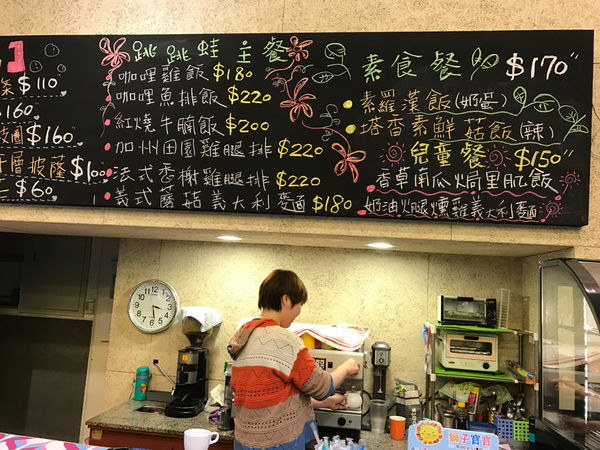 條$110
$160
披圈$160
千層披薩$100
$60
跳跳蛙主餐
咖哩雞飯$180
咖哩魚排飯$220
紅燒牛腩飯$200
加州田園雞腿排$220
法式香榭雞腿排$220
義式蘑菇義大利麵$180
素食餐$170"
素羅漢飯(奶蛋)
塔香素鮮菇飯(辣)
兒童餐$150"
香草南瓜焗里肌飯
奶油火腿燻雞義大利麵
獅子寶寶